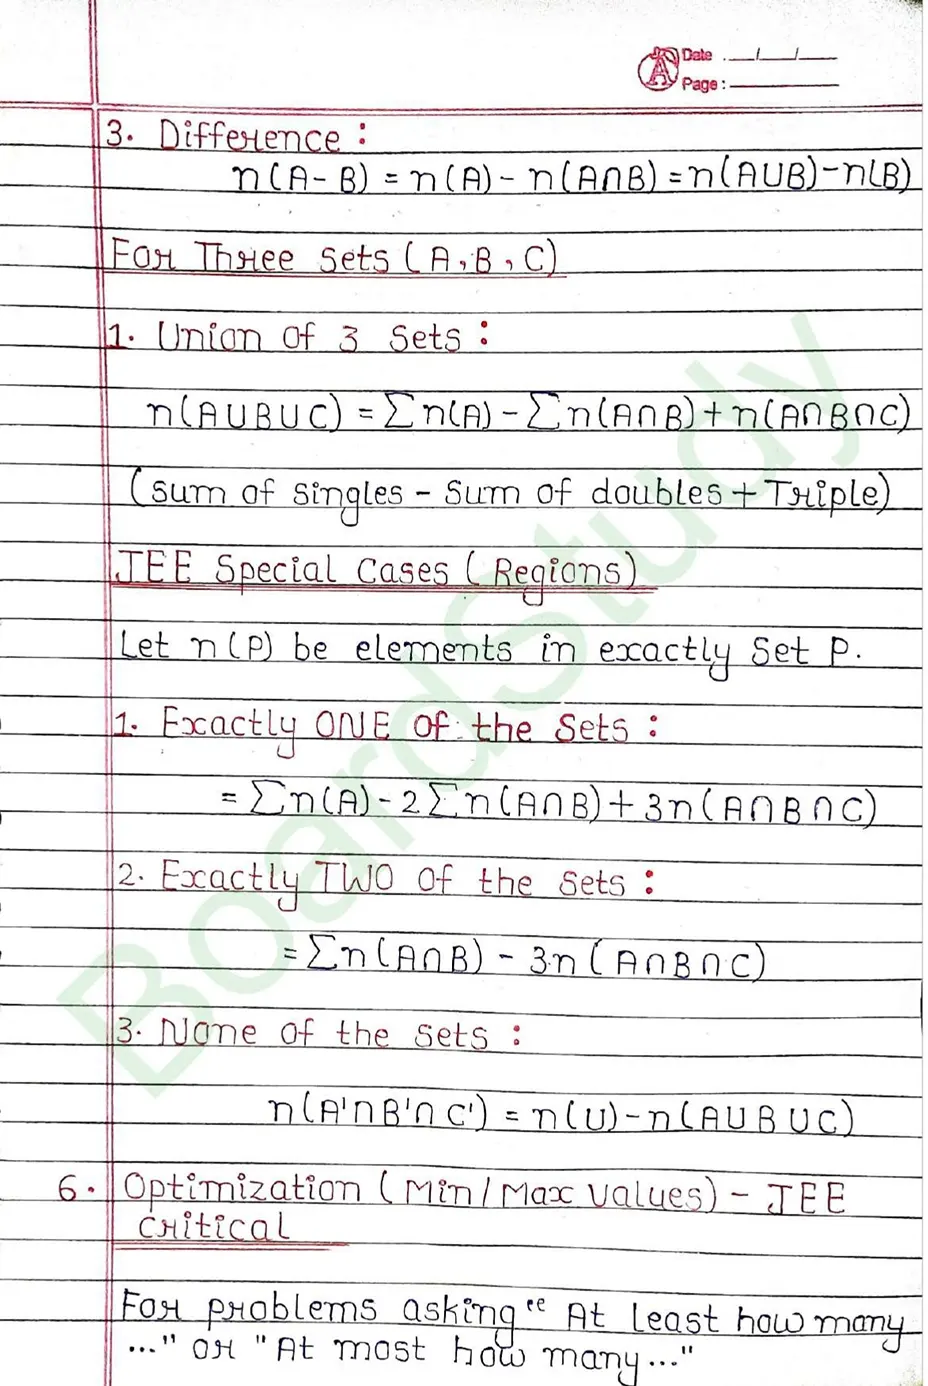 Date : __/__/__
Page :
3. Difference :
n(A-B) = n(A) - n(A∩B) = n(A∪B) - n(B)
For Three sets (A, B, C)
1. Union of 3 sets :
n(A∪B∪C) = ∑n(A) - ∑n(A∩B) + n(A∩B∩C)
(sum of singles - sum of doubles + Triple)
JEE Special Cases (Regions)
Let n(P) be elements in exactly Set P.
1. Exactly ONE of the sets :
= ∑n(A) - 2∑n(A∩B) + 3n(A∩B∩C)
2. Exactly TWO of the sets :
= ∑n(A∩B) - 3n(A∩B∩C)
3. None of the sets :
n(A'∩B'∩C') = n(U) - n(A∪B∪C)
6. Optimization (Min/Max Values) - JEE
critical
For problems asking "At least how many
..." or "At most how many..."
BoardStudy